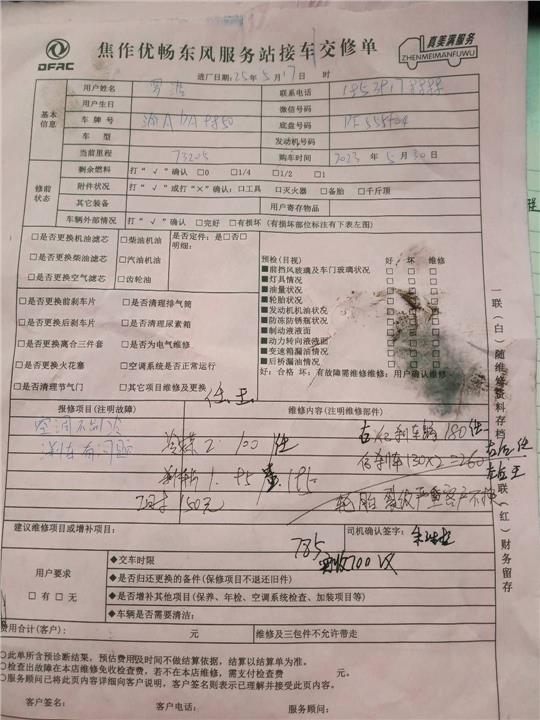 DFAC
焦作优畅东风服务站接车交修单
真美满服务
ZHENMEIMANFUWU
进厂日期:25年5月17日 时
基本信息
用户姓名
联系电话
用户生日
微信号码
车牌号
底盘号码
车型
发动机号码
当前里程 73205
购车时间 2023年5月30日
修前状态
剩余燃料 打“√”确认 □0 □1/4 □1/2 □1
附件状况 打“√”或打“×”确认:□工具 □灭火器 □备胎 □千斤顶
其它装备
用户寄存物品
车辆外部情况 打“√”确认 □完好 □有损坏(有损坏部位标注有下表左图)
□是否更换机油滤芯
□是否更换柴油滤芯
□是否更换空气滤芯
□柴油机油
□汽油机油
□齿轮油
是否定件:是□否□
明细:
□是否更换前刹车片
□是否更换后刹车片
□是否更换离合三件套
□是否更换火花塞
□是否清理节气门
□是否清理排气筒
□是否清理尿素箱
□是否为电气维修
□空调系统是否正常运行
□其它项目维修及更换
预检(目视) 好 坏 维修
■前挡风玻璃及车门玻璃状况 □ □ □
■灯具情况
■油量状况
■轮胎状况
■发动机机油状况
■防冻防锈瓶状况
■制动液液面
■动力转向液液面
■变速箱漏油情况
■后桥漏油情况
好:合格 坏:有故障需维修维修:用户确认维修
一联(白)随维修资料存档
二联(红)财务留存
报修项目(注明故障)
维修内容(注明维修部件)
空调不制冷
刹车有问题
冷媒2 100
工时 150元
右后刹车蹄 180
130×2=260
轮胎裂纹严重客户不换
建议维修项目或增补项目:
司机确认签字:
785
实收700
用户要求
□有 □无
◆交车时限
◆是否归还更换的备件(保修项目不退还旧件)
◆是否增补其他项目(保养、年检、空调系统检查、加装项目等)
◆车辆是否需要清洁:
费用合计(客户): 元
维修及三包件不允许带走
○此单所含预诊断结果,预估费用及时间不做结算依据,结算以结算单为准。
○检查出故障在本店维修免收检查费,若不在本店维修,需支付检查费 元。
○服务顾问已将此页内容详细向客户说明,客户签名则表示已理解并接受此页内容。
客户签名: 客户电话: 服务顾问: